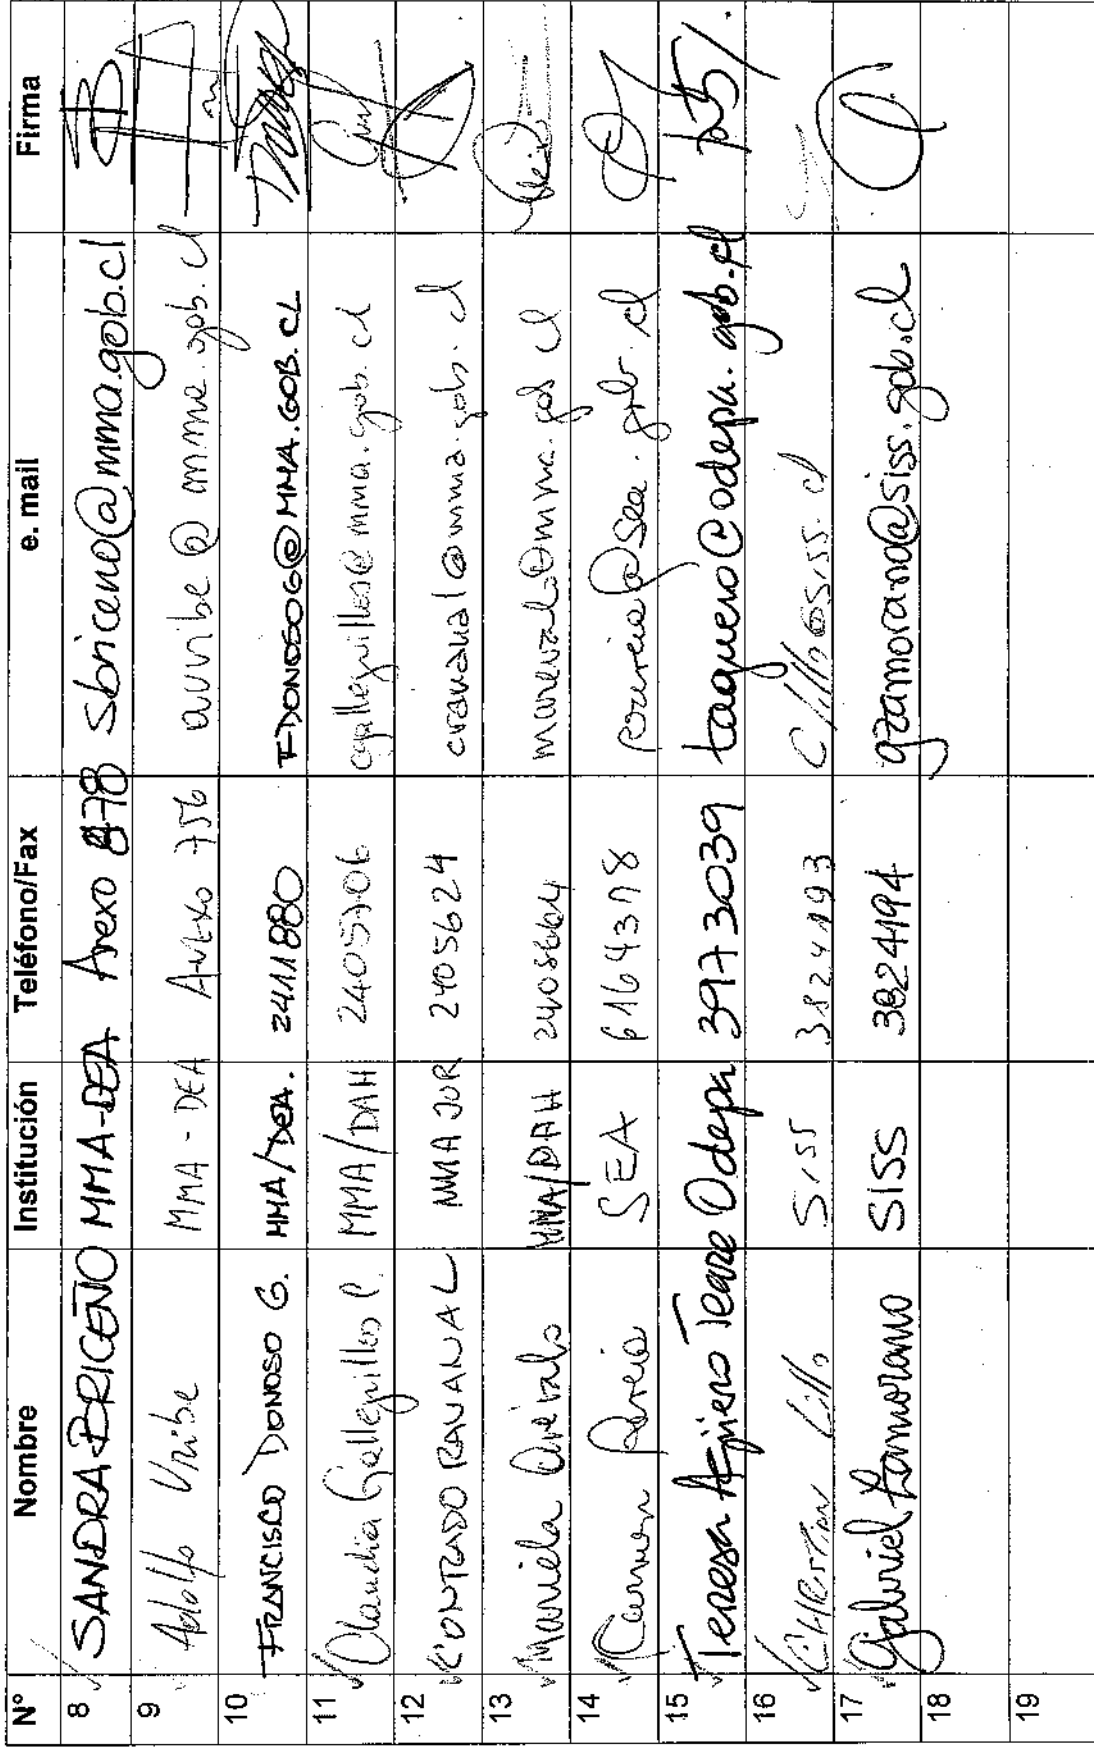 N° Nombre Institución Teléfono/Fax e. mail Firma
8 SANDRA BRICEÑO MMA-DEA Anexo 878 sbriceno@mma.gob.cl
9 Adolfo Uribe MMA - DEA Anexo 756 auribe@mma.gob.cl
10 FRANCISCO DONOSO G. MMA/DEA. 2411880 FDONOSOG@MMA.GOB.CL
11 Claudia Galleguillos C. MMA/DAH 2405706 cgalleguillos@mma.gob.cl
12 CONTRADO RAVANAL MMA JUR 2405624 cravanal@mma.gob.cl
13 Mariela Arévalo MMA/DAH 2405664 marevalo@mma.gob.cl
14 Carmen SEA 6164378
15 Teresa Agüero Teare Odepa 3973039 taguero@odepa.gob.cl
16 Christian Lillo SISS 3824193 clillo@siss.cl
17 Gabriel Zamorano SISS 3824194 gzamorano@siss.gob.cl
18
19